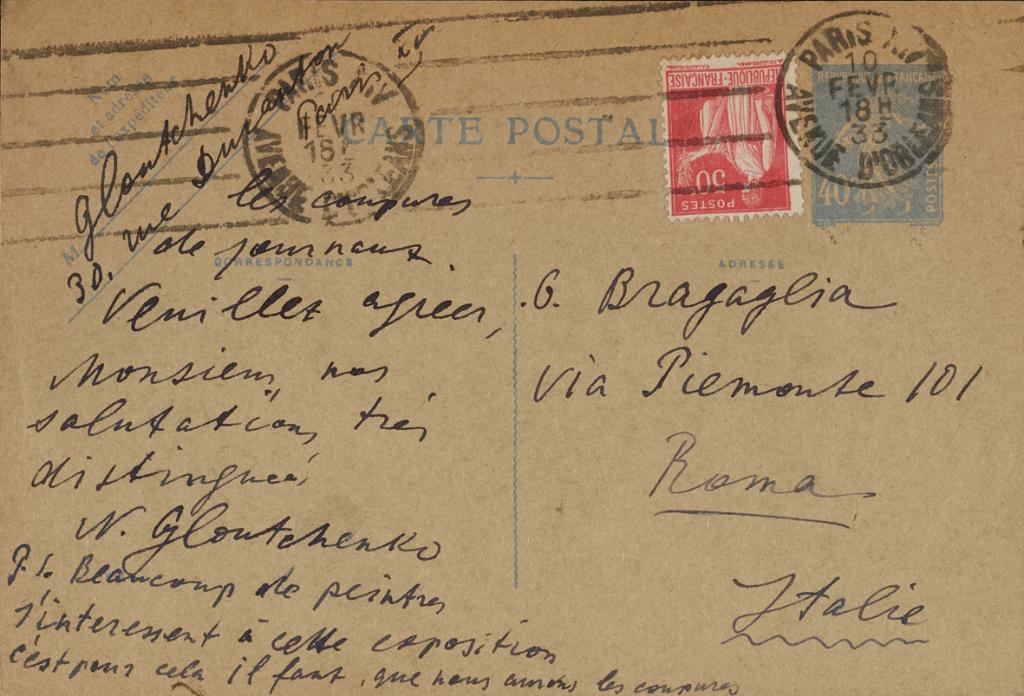 Nom
et adresse
de l'expéditeur
M
Gloutchenko
30. rue Duranton
Paris XV
PARIS XIV
FEVR
18H
33
AVENUE D'ORLEANS
CARTE POSTALE
RÉPUBLIQUE-FRANÇAISE
50
POSTES
PARIS XIV
10
FEVR
18H
33
AVENUE D'ORLEANS
REPUBLIQUE FRANCAISE
40
POSTES
les coupures
de journaux
CORRESPONDANCE
Veuillez agréer,
Monsieur, nos
salutations très
distinguées
N. Gloutchenko
P.S. Beaucoup de peintres
s'interessent à cette exposition
c'est pour cela il faut, que nous aurons les coupures
ADRESSE
G. Bragaglia
via Piemonte 101
Roma
Italie